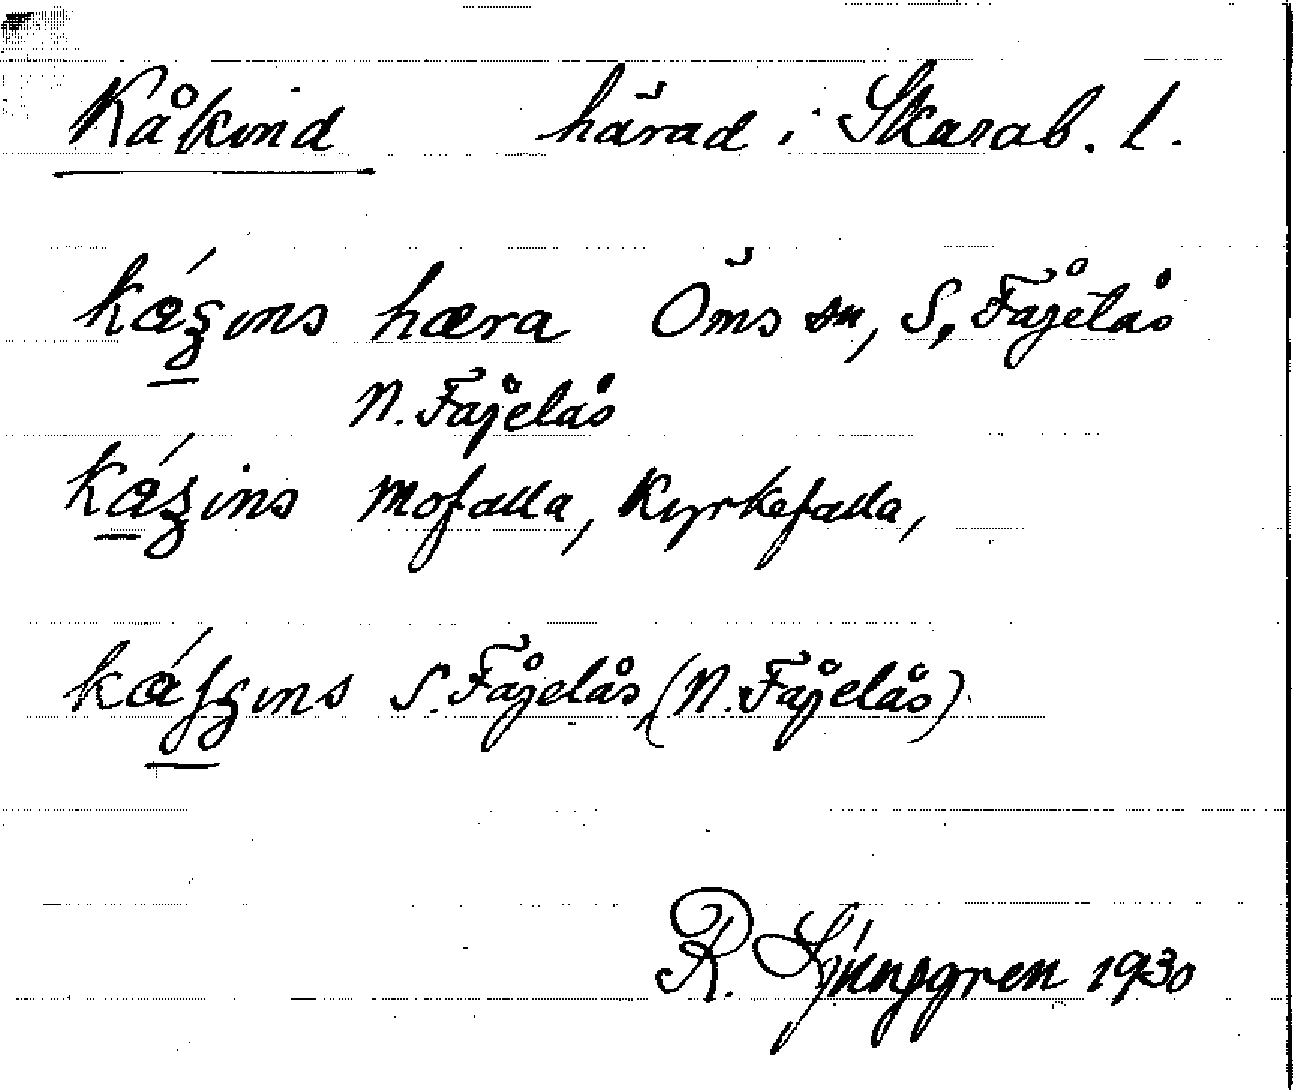 Kåkind härad i Skarab. l.
káʒıns hæra Öms sn, S. Fågelås
N. Fågelås
káʒins Mofalla, Kyrkefalla,
káʃʒıns S. Fågelås (N. Fågelås)
R. Ljunggren 1930